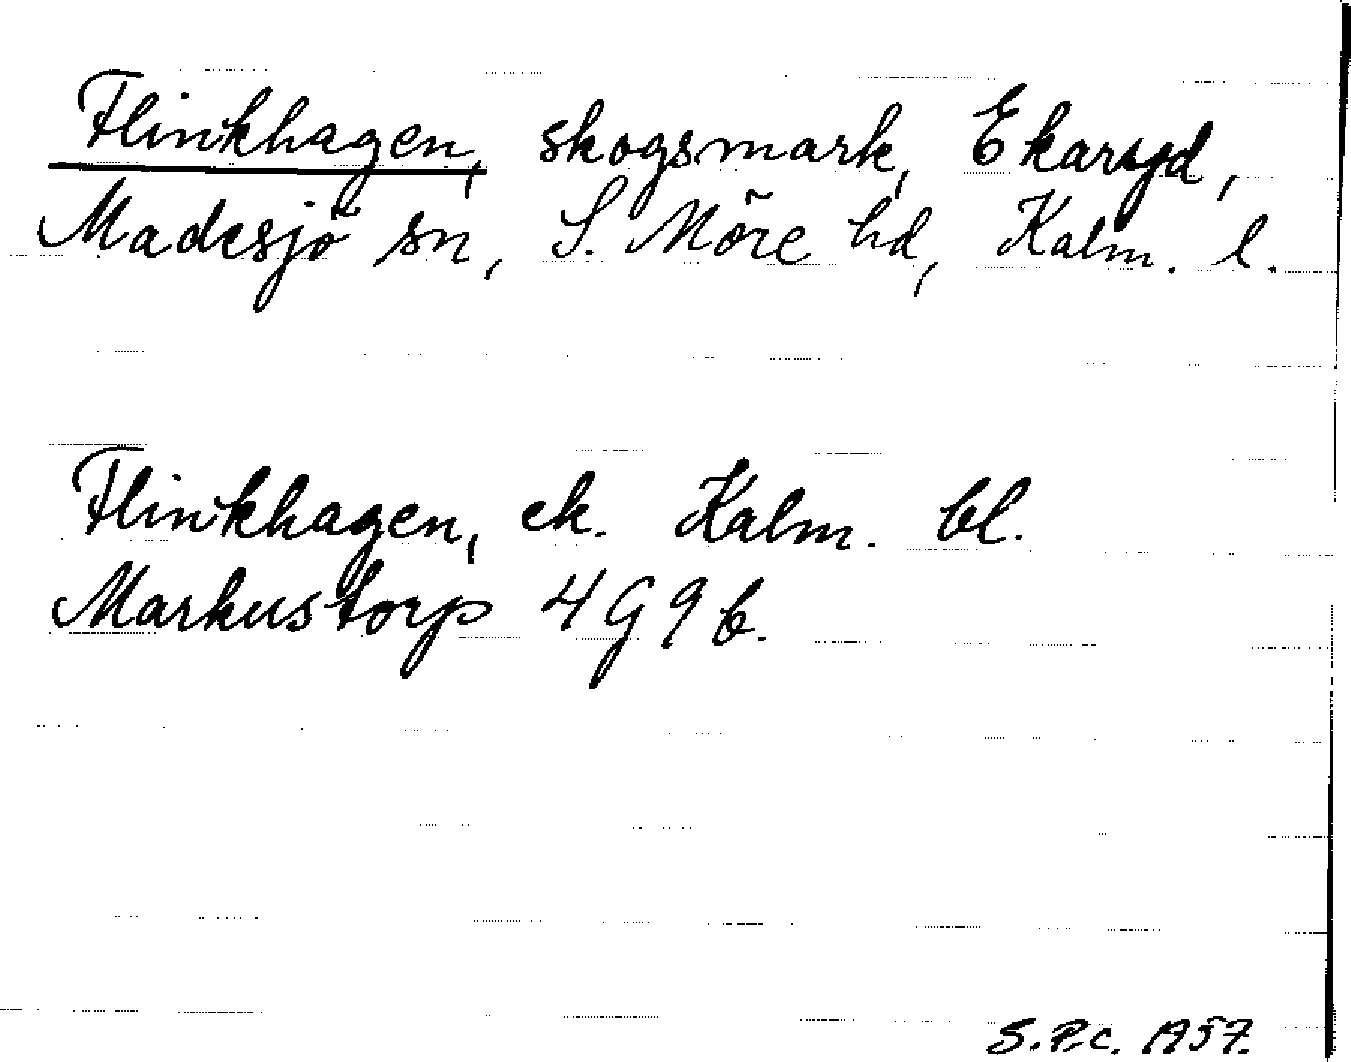 Flinkhagen, skogsmark, Ekaryd,
Madesjö sn, S. Möre hd, Kalm. l.
Flinkhagen, ek. Kalm. bl.
Markustorp 4G9b.
S.P.C. 1957.